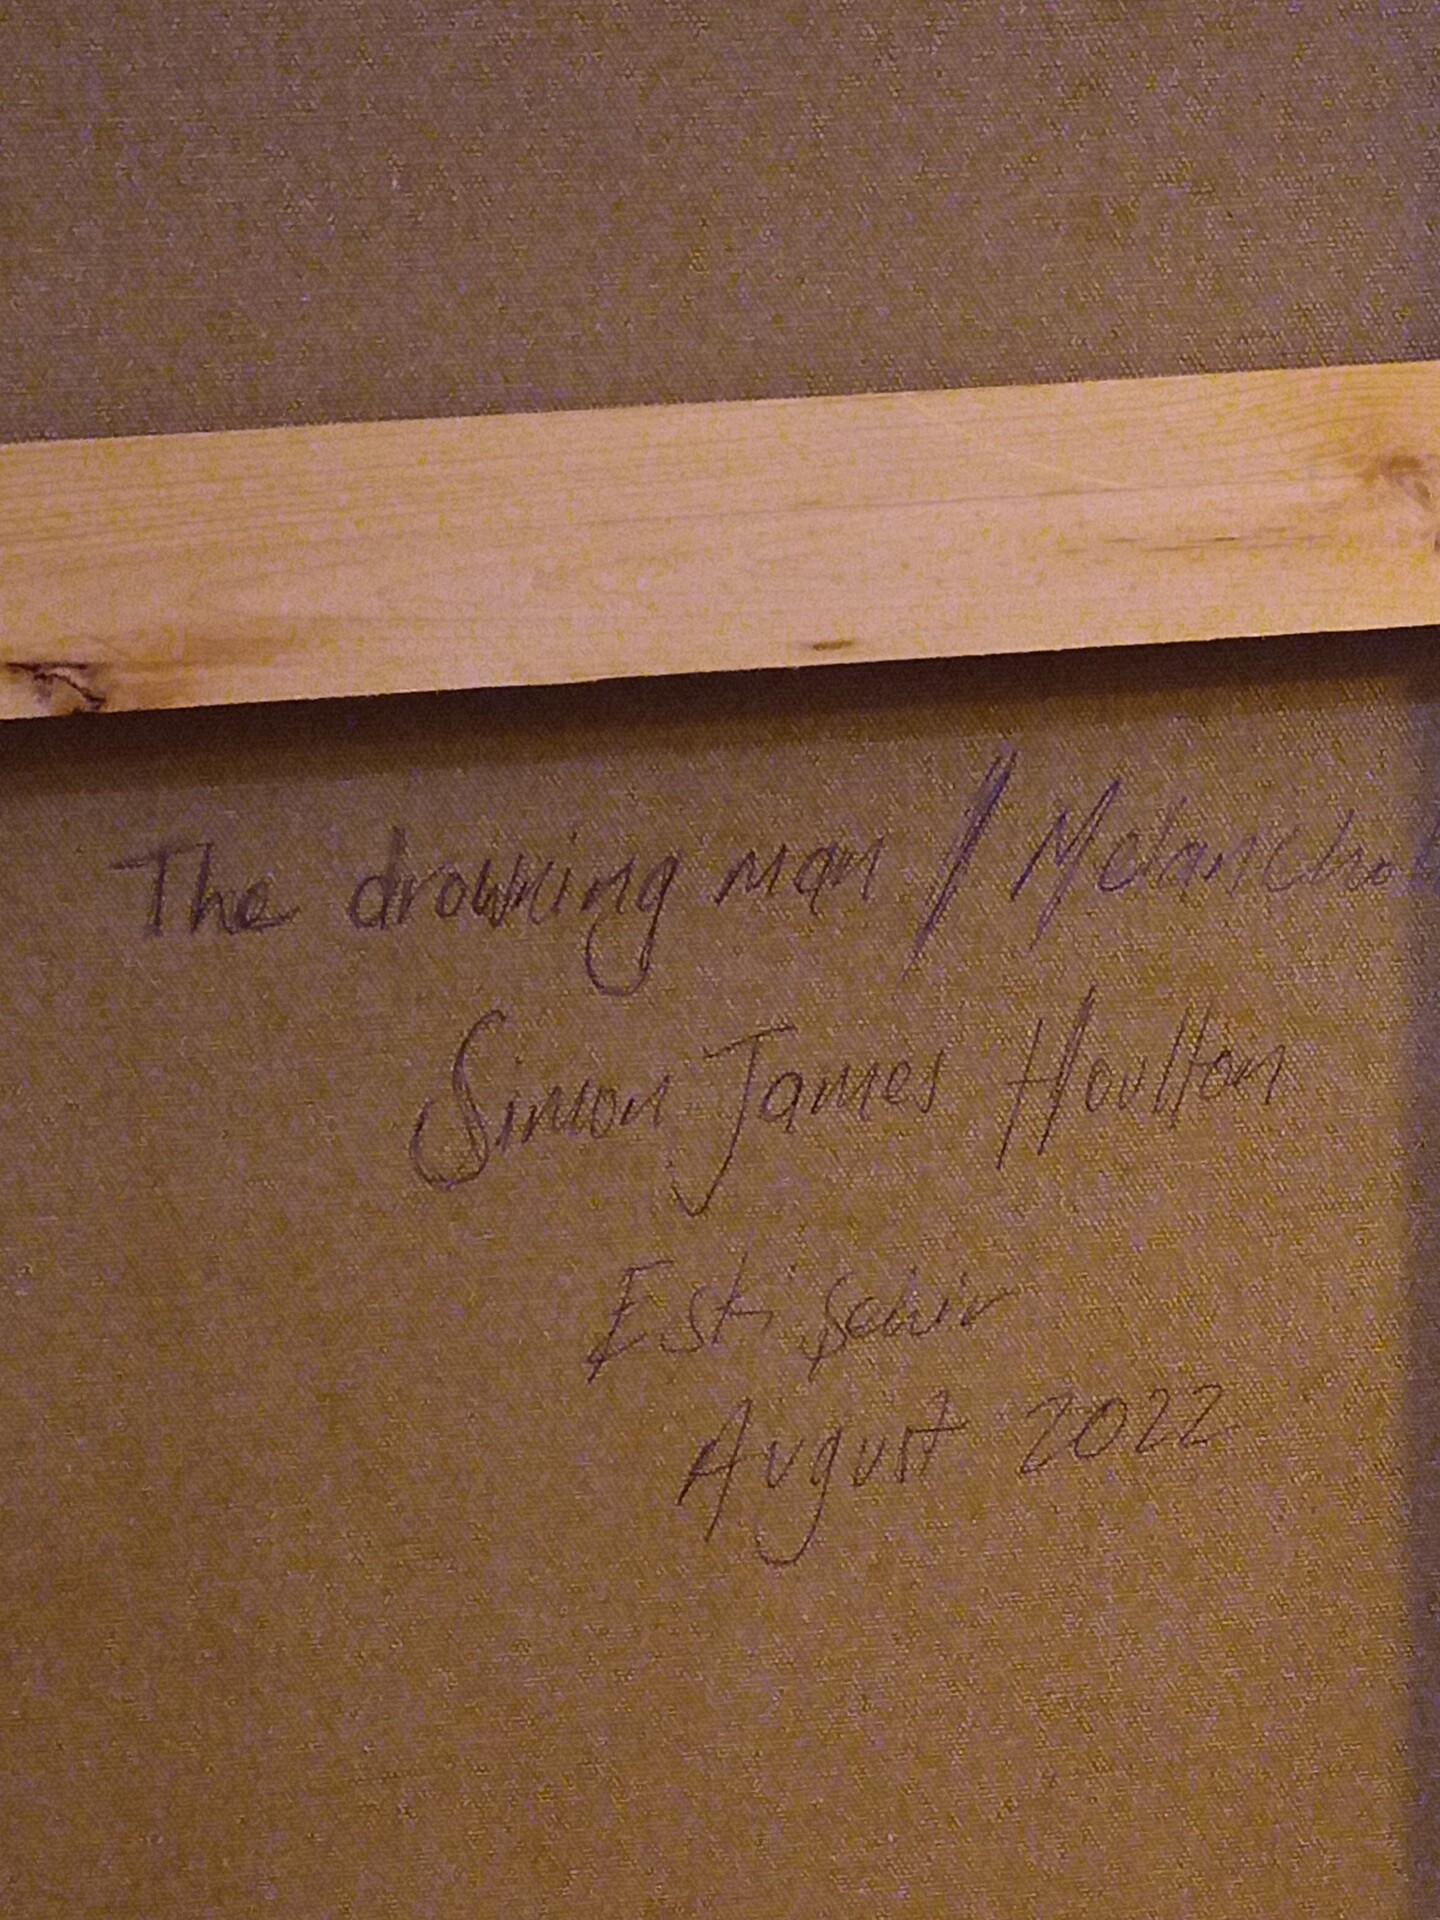 The drowning man / Melanchol
Simon James Houlton
Eskişehir
August 2022